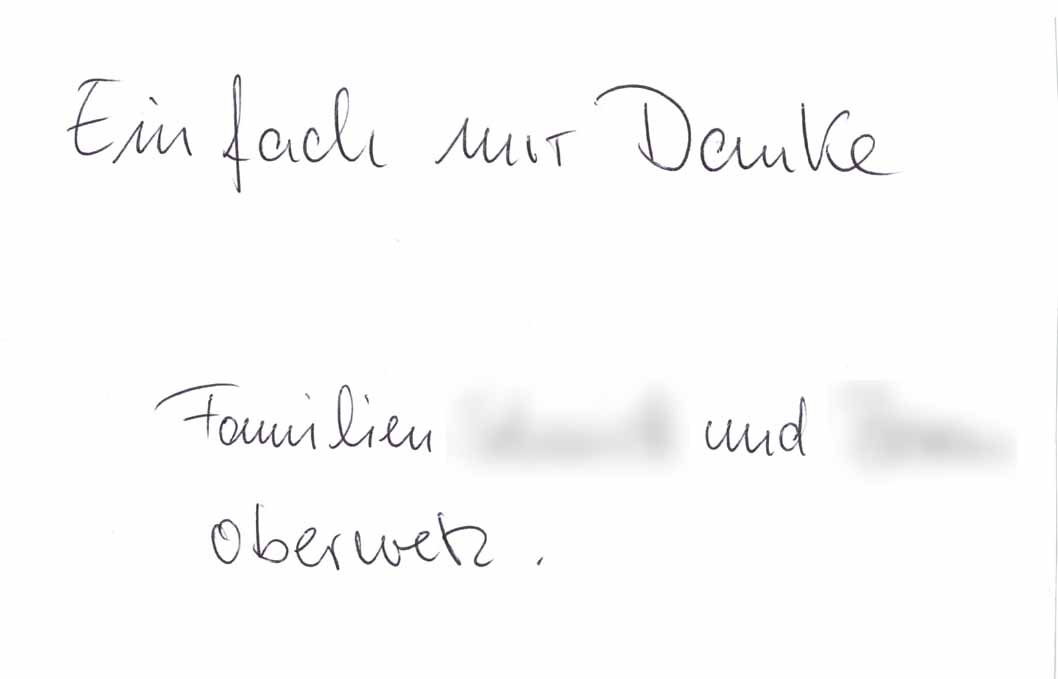 Einfach nur Danke
Familien und
Oberwetz.